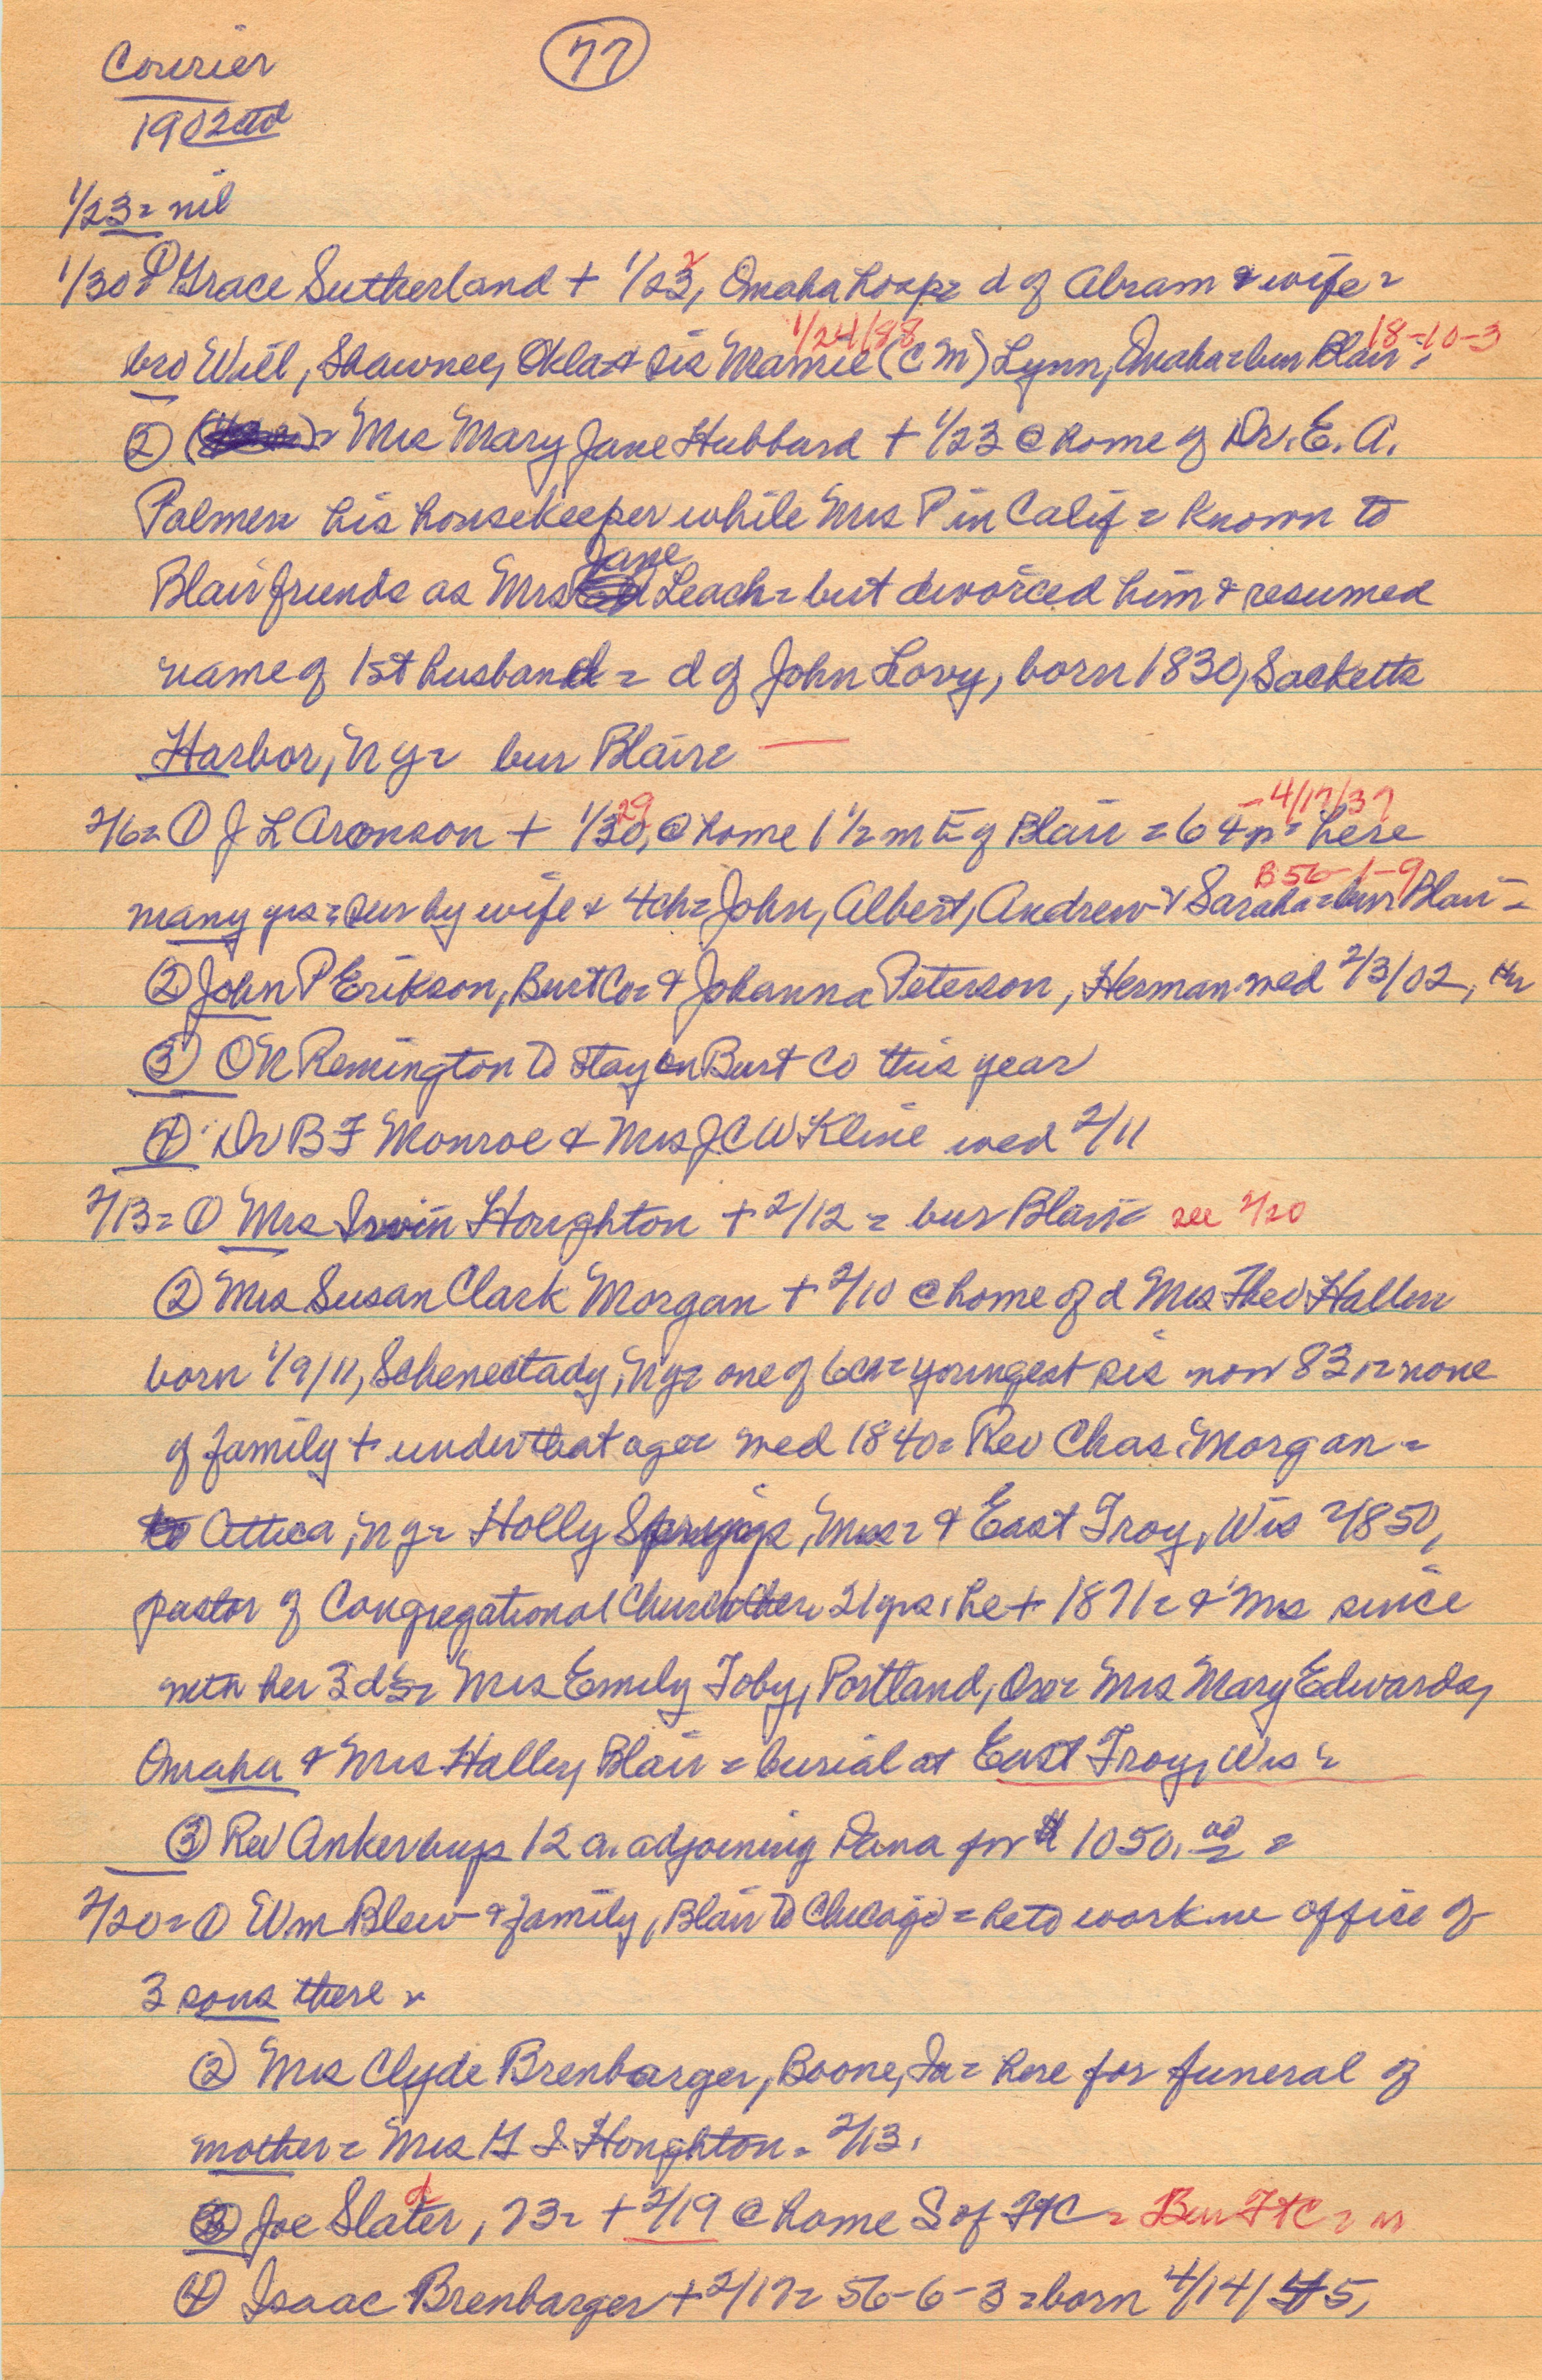 Courier
77
1902 ctd
1/23 = nil
1/30 ① Grace Sutherland + 1/23, Omaha hosp = d of Abram & wife =
2
1/24/88
18-10-3
bro Will, Shawnee, Okla & sis Mamie (C M) Lynn, Omaha = bur Blair =
② Mrs Mary Jane Hubbard + 1/23 @ home of Dr. E. A.
Palmer = his housekeeper while Mrs P in Calif = known to
Jane
Blair friends as Mrs Leach = but divorced him & resumed
name of 1st husband = d of John Lovy, born 1830, Sacketts
Harbor, N Y = bur Blair =
29
- 4/17/37
2/6 = ① J L Aronson + 1/30, @ home 1 1/2 m E of Blair = 64 = here
B 56-1-9
many yrs = sur by wife & 4 ch = John, Albert, Andrew & Sarah = bur Blair =
② John P Erikson, Burt Co = & Johanna Peterson, Herman wed 2/3/02,
③ O N Remington to stay in Burt Co this year
④ Dr B F Monroe & Mrs J C W Kline wed 2/11
2/13 = ① Mrs Irvin Houghton + 2/12 = bur Blair = see 2/20
② Mrs Susan Clark Morgan + 2/10 @ home of d Mrs Theo Haller
born 1/9/11, Schenectady, N Y = one of 6 ch = youngest sis now 83 = none
of family + under that age = wed 1840 = Rev Chas Morgan =
Attica, N Y = Holly Springs, Miss = & East Troy, Wis 1850,
pastor of Congregational Church there 21 yrs, he + 1871 = & Mrs since
with her 3 d's = Mrs Emily Toby, Portland, Ore = Mrs Mary Edwards,
Omaha & Mrs Haller, Blair = burial at East Troy, Wis =
③ Rev Anker buys 12 a. adjoining Dana for $ 1050.00 =
2/20 = ① Wm Blew & family, Blair to Chicago = he to work in office of
3 sons there =
② Mrs Clyde Brenbarger, Boone, Ia = here for funeral of
mother = Mrs G I Houghton = 2/13.
③ Joe Slater, 73 = + 2/19 @ home S of Ft C = Bur Ft C =
④ Isaac Brenbarger + 2/17 = 56-6-3 = born 4/14/45,